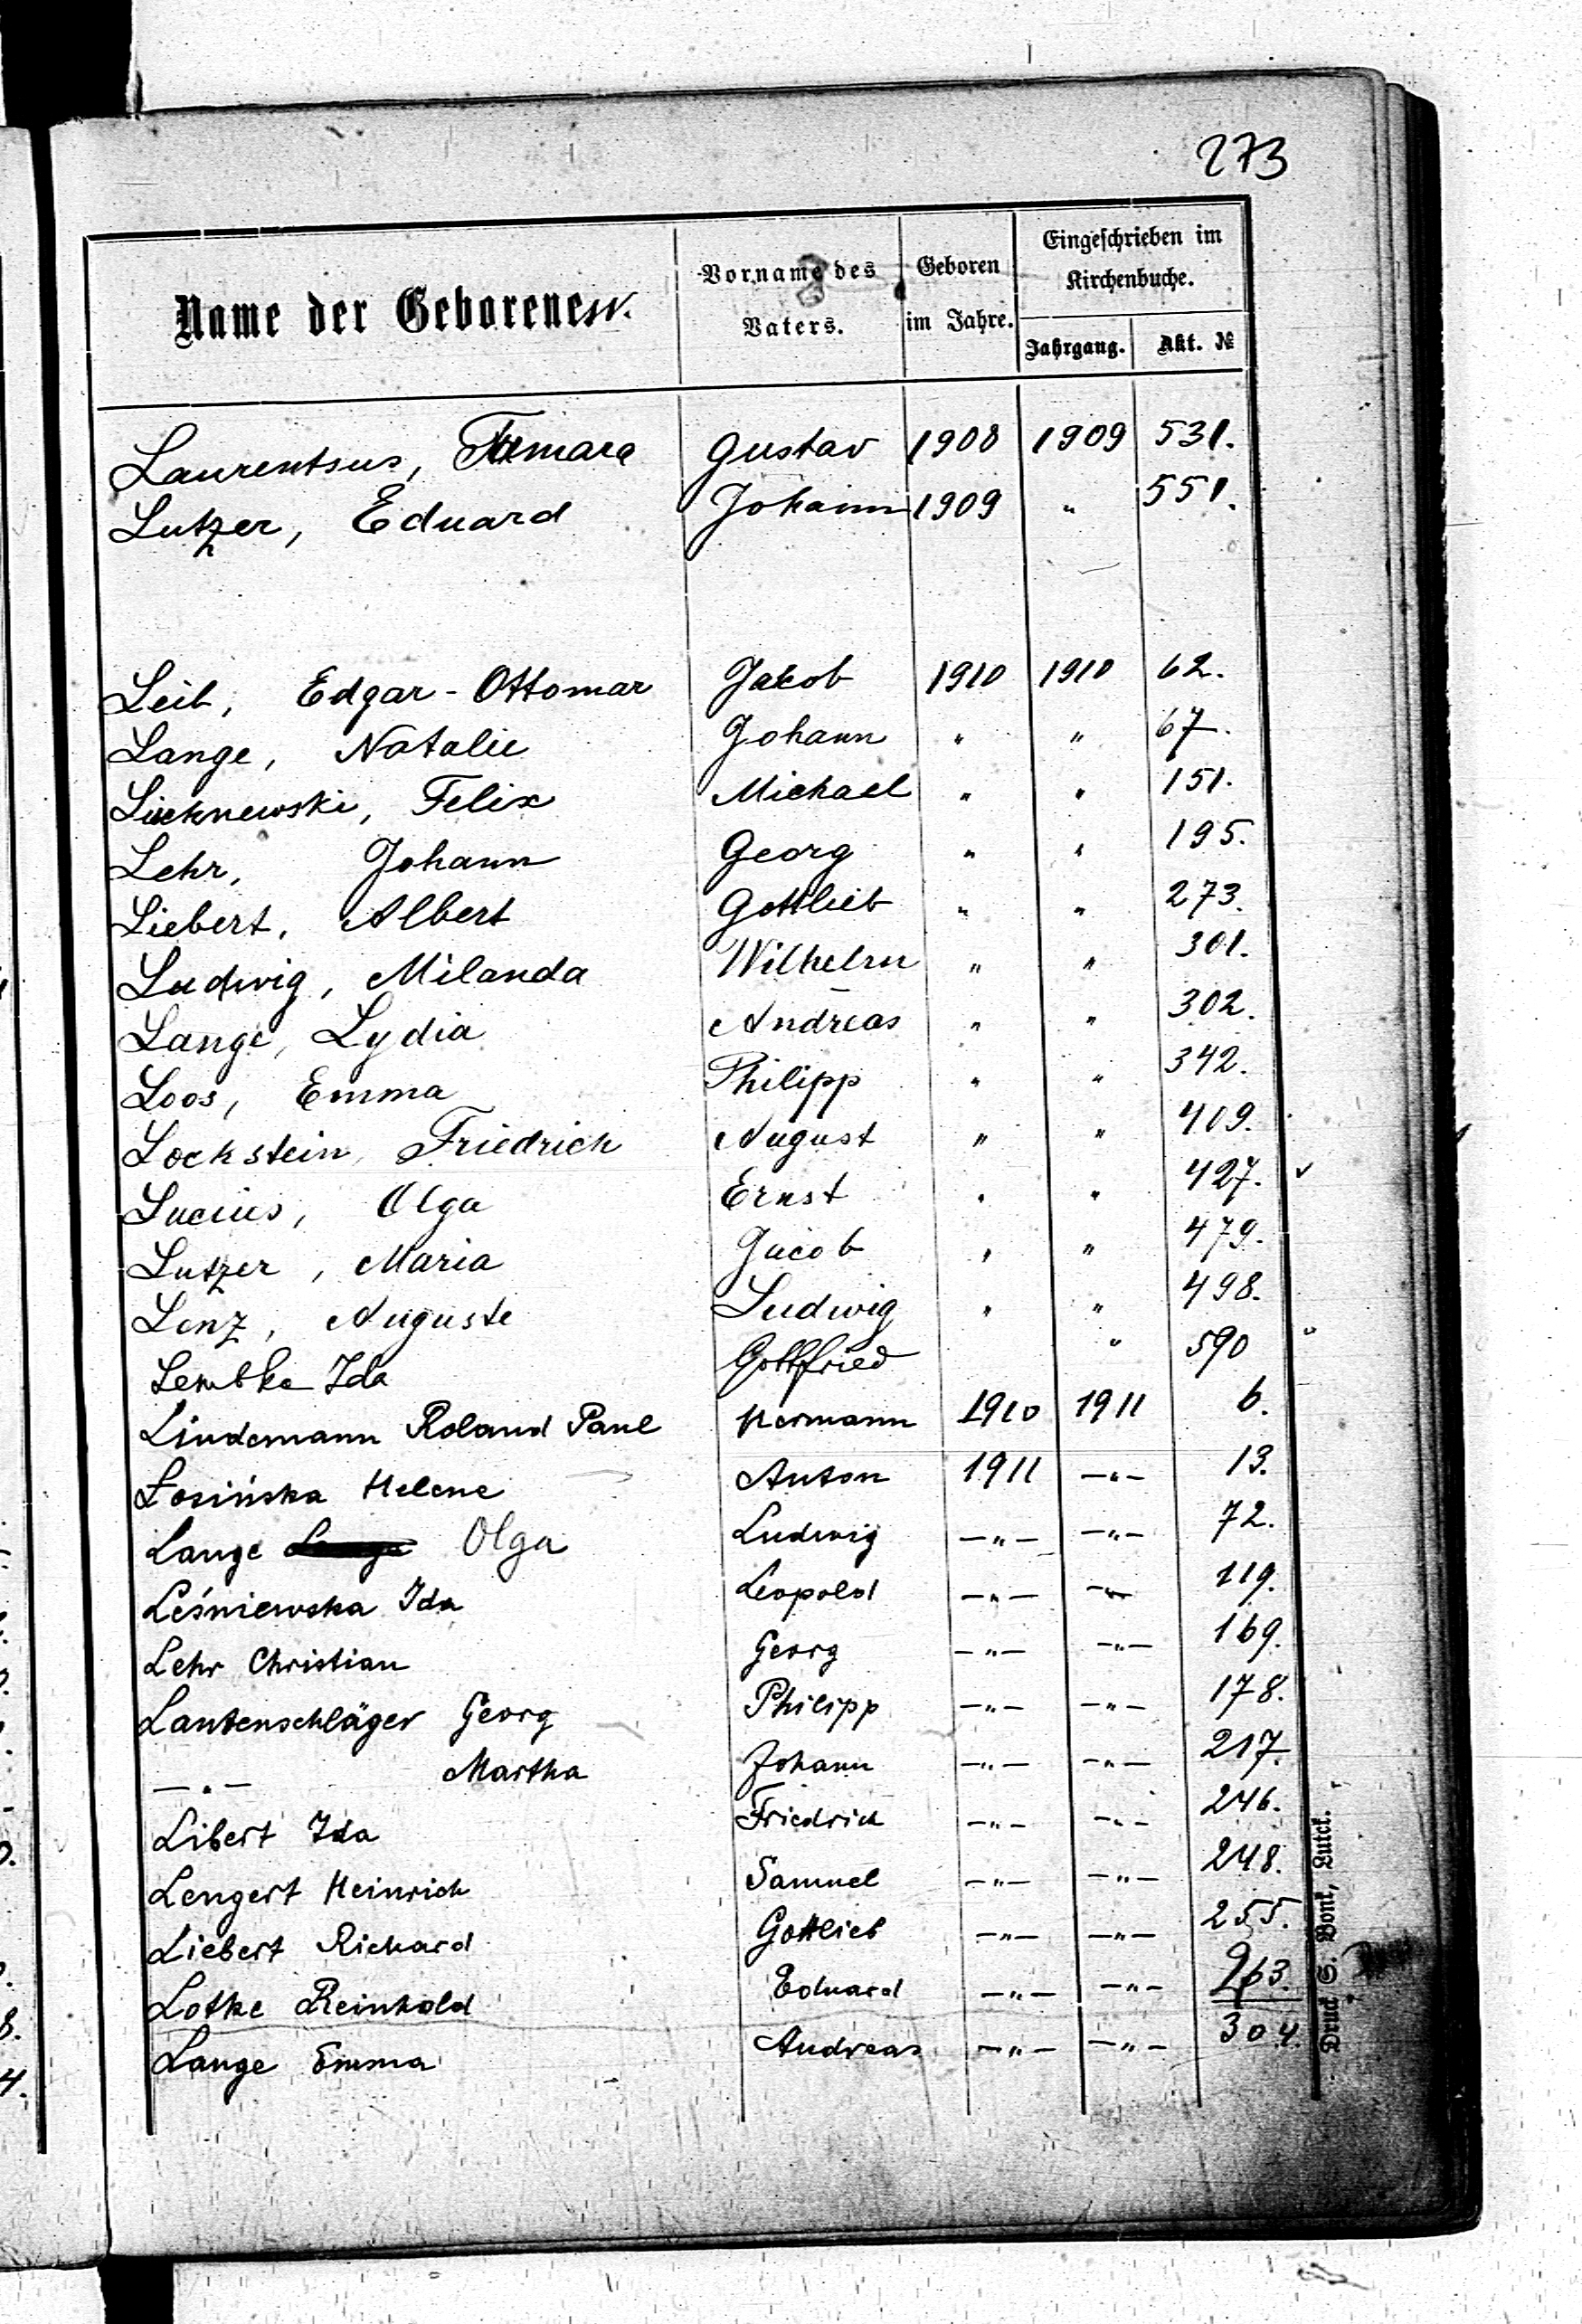 273
Name der Geborenen.
Vorname des Vaters.
Geboren im Jahre.
Eingeschrieben im Kirchenbuche.
Jahrgang. Akt. №
Laurentsus, Tamara Gustav 1908 1909 531.
Lutzer, Eduard Johann 1909 " 551.
Leib, Edgar-Ottomar Jakob 1910 1910 62.
Lange, Natalie Johann " " 67.
Felix Michael " " 151.
Lehr, Johann Georg " " 195.
Liebert, Albert Gottlieb " " 273.
Ludwig, Milanda Wilhelm " " 301.
Lange, Lydia Andreas " " 302.
Loos, Emma Philipp " " 342.
Lockstein, Friedrich August " " 409.
Lucius, Olga Ernst " " 427. v
Lutzer, Maria Jacob " " 479.
Lenz, Auguste Ludwig " " 498.
Lembke Ida Gottfried " 590
Lindemann Roland Paul Hermann 1910 1911 6.
Łosińska Helene Anton 1911 —"— 13.
Lange Olga Ludwig —"— —"— 72.
Leśniewska Ida Leopold —"— —"— 119.
Lehr Christian Georg —"— —"— 169.
Lautenschläger Georg Philipp —"— —"— 178.
—"— Martha Johann —"— —"— 217.
Libert Ida Friedrich —"— —"— 246.
Lengert Heinrich Samuel —"— —"— 248.
Liebert Richard Gottlieb —"— —"— 255.
Lotke Reinhold Eduard —"— —"— 263.
Lange Emma Andreas —"— —"— 304.
Druck S. Bont, Lutck.